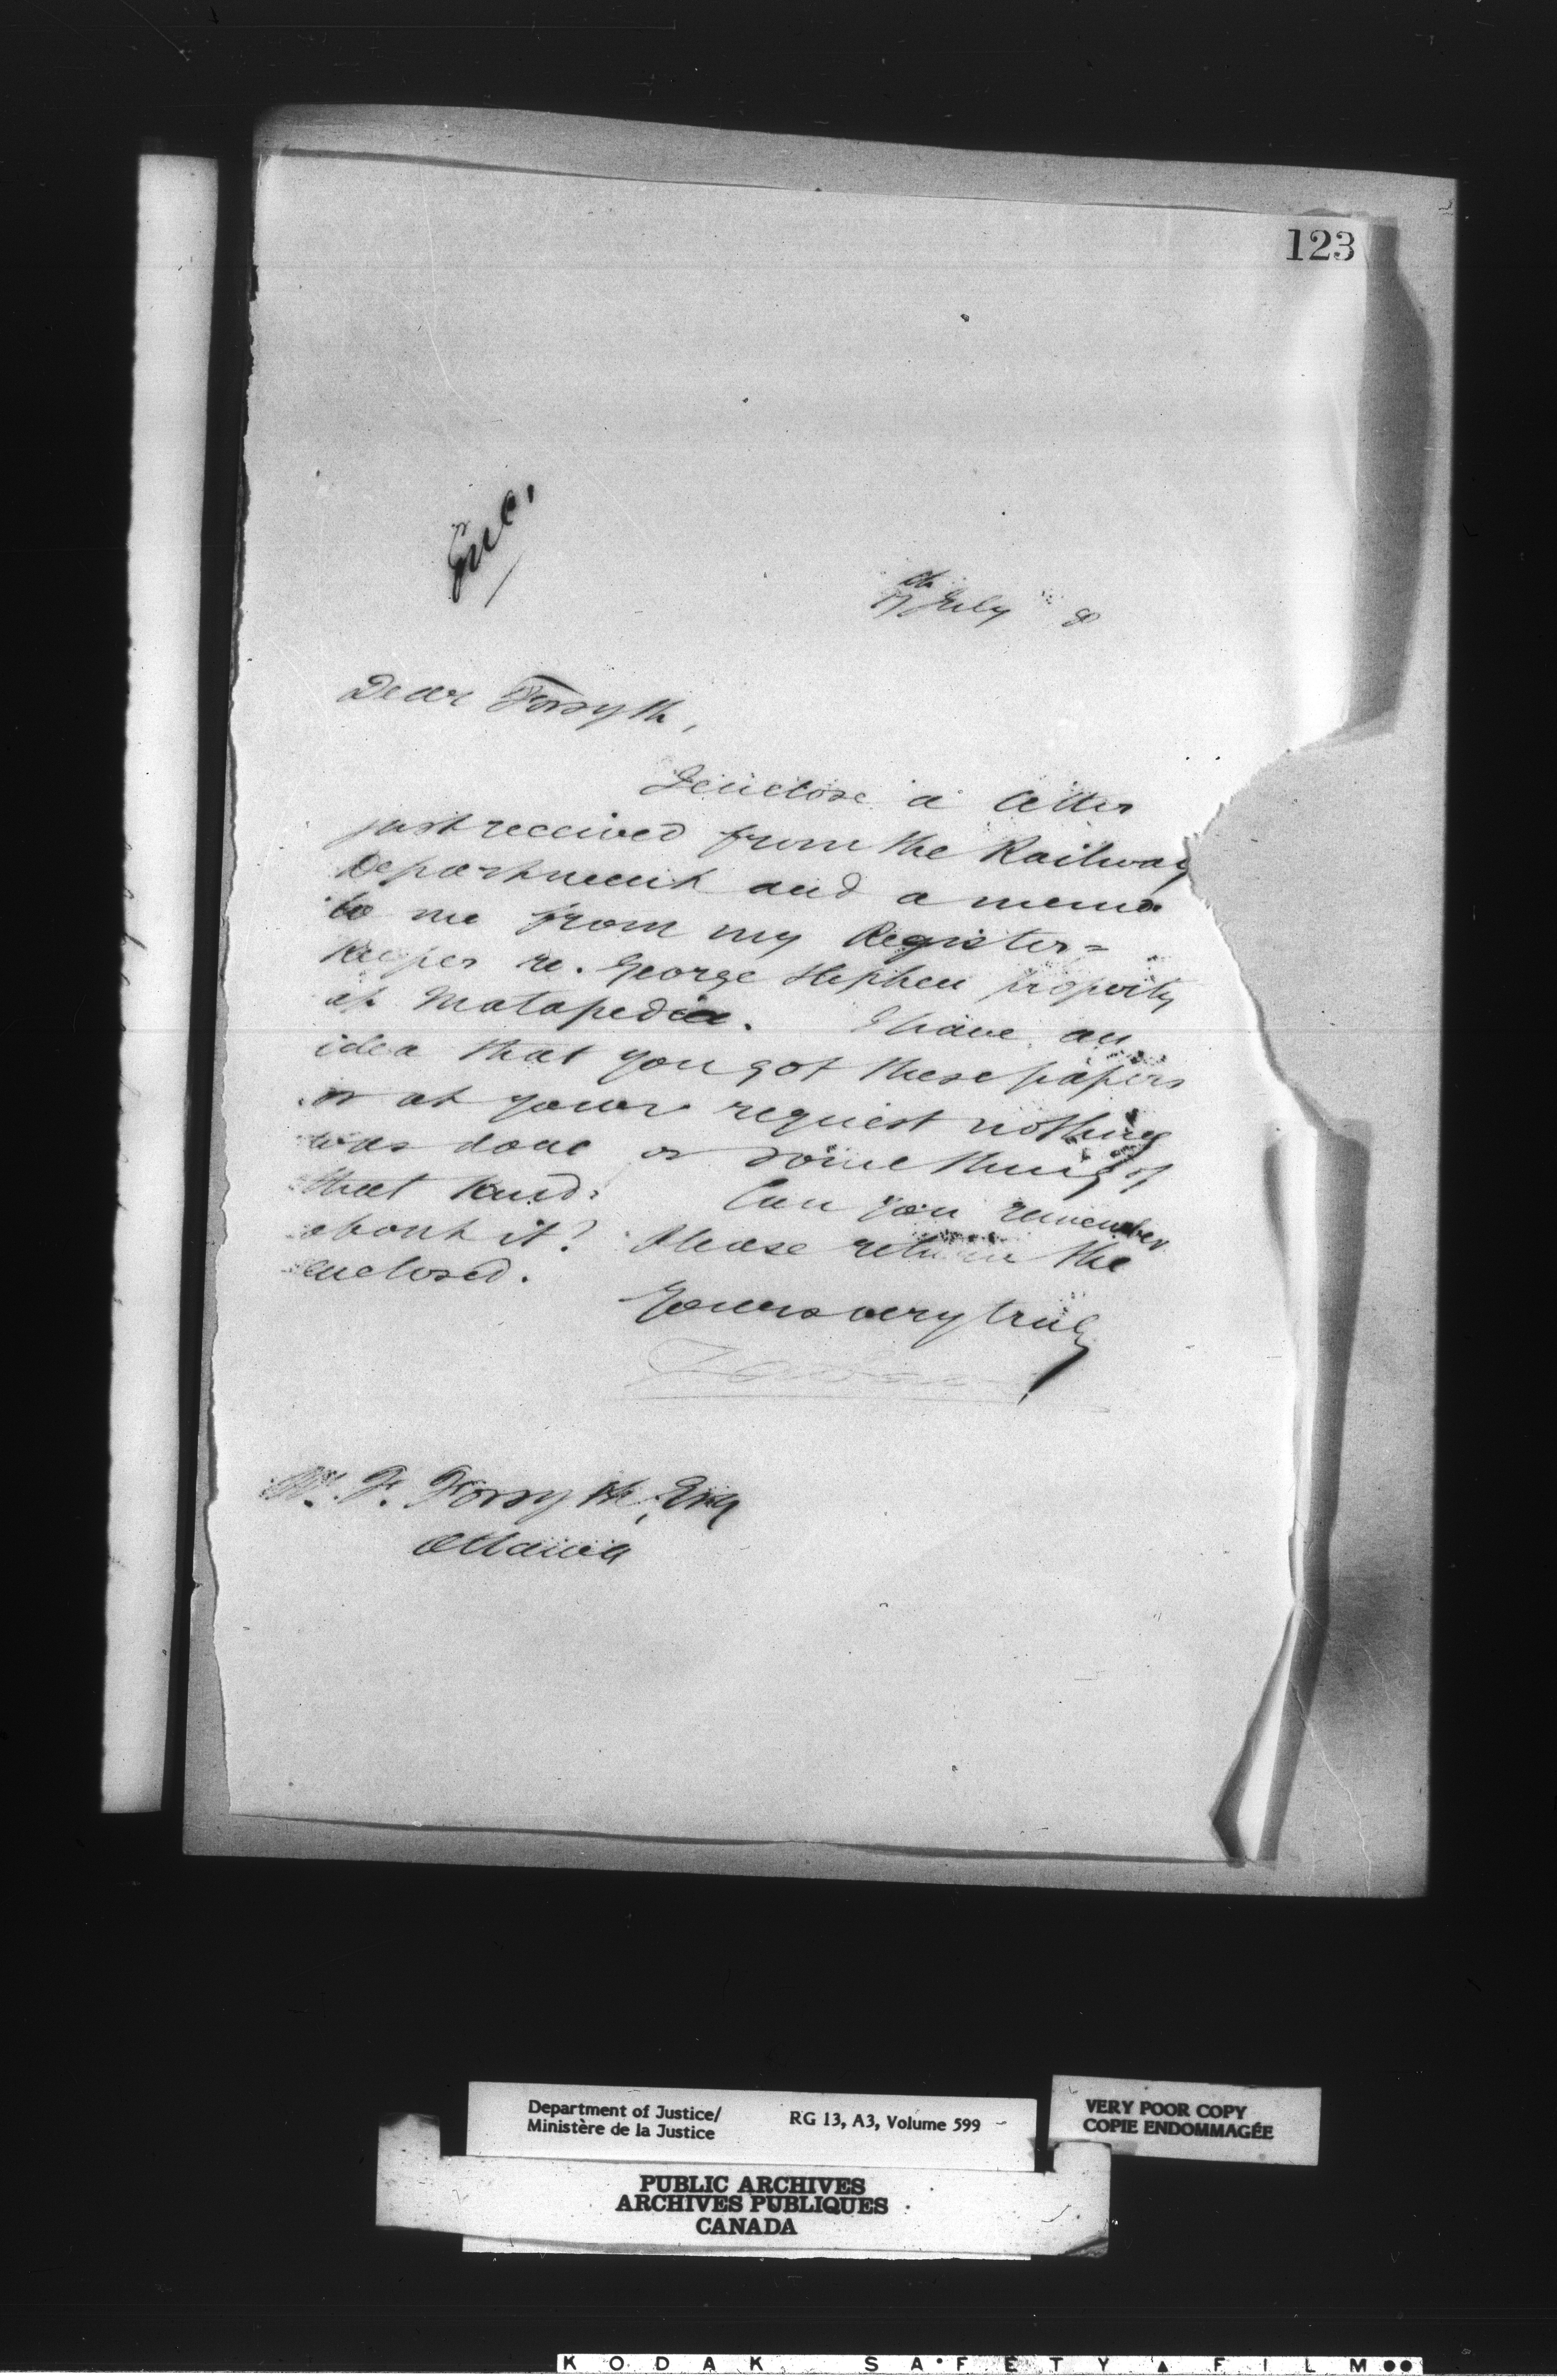 123
Enc.
7th July 8
Dear Forsyth,
I enclose a letter
just received from the Railway
Department and a memo
to me from my Register=
Keeper re. George Stephen property
at Matapedia. I have an
idea that you got these papers
or at your request nothing
was done or something of
that kind. Can you remember
about it? Please return the
enclosed.
Yours very truly
W. F. Forsyth, Esq
Ottawa
Department of Justice/
Ministère de la Justice
RG 13, A3, Volume 599
VERY POOR COPY
COPIE ENDOMMAGÉE
PUBLIC ARCHIVES
ARCHIVES PUBLIQUES
CANADA
KODAK SAFETY FILM